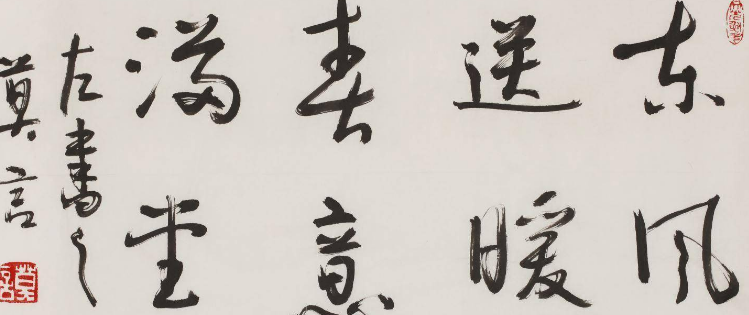 东风
送暖
春意
满堂
左书之
莫言